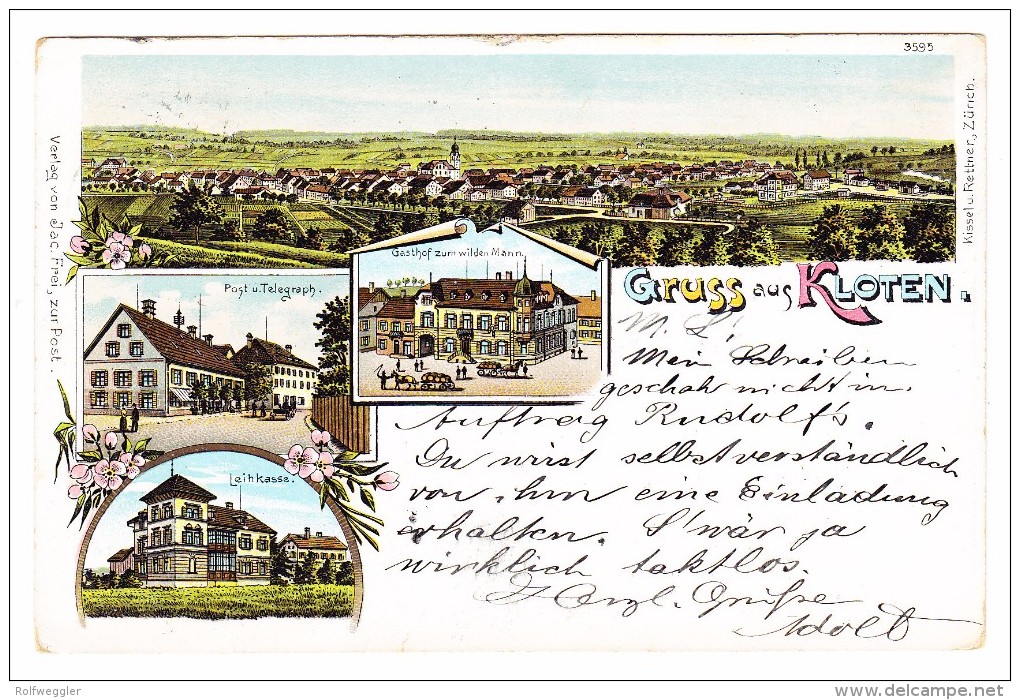 3595
Kissel u. Rettner, Zürich.
Verlag von Jac. Frei, zur Post.
Gasthof zum wilden Mann.
Post u. Telegraph.
Leihkasse.
Gruss aus KLOTEN.
M. L!
Mein Schreiben
geschah nicht im
Auftrag Rudolf's.
Du wirst selbstverständlich
von ihm eine Einladung
erhalten. S'wär ja
wirklich taktlos.
Herzl. Grüsse
Adolf
Rolfweggler
delcampe.net